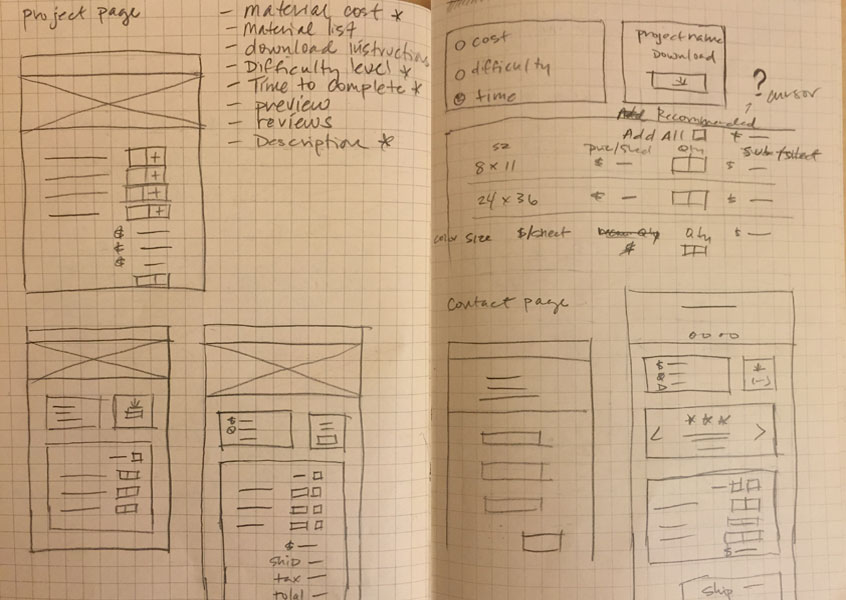 project page
- material cost *
- Material list
- download instructions
- Difficulty level *
- Time to complete *
- preview
- reviews
- Description *
$
$
$
$
$ —
ship —
tax —
total —
cost
dfficulty
time
project name
Download
?
cursor
Recommended
Add All
Qty
8 x 11
$ —
$ —
24 x 36
$ —
$ —
color size
$/sheet
$
Qty
$ —
contact page
$
* * *
< >
$ —
ship —